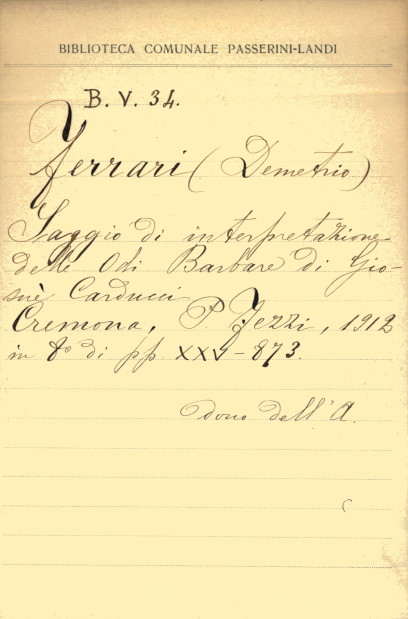 BIBLIOTECA COMUNALE PASSERINI-LANDI
B. V. 34.
Ferrari (Demetrio)
Saggio di interpretazione
delle Odi Barbare di Gio-
suè Carducci
Cremona, P. Fezzi, 1912
in 8º di pp XXV-873.
dono dell'A.